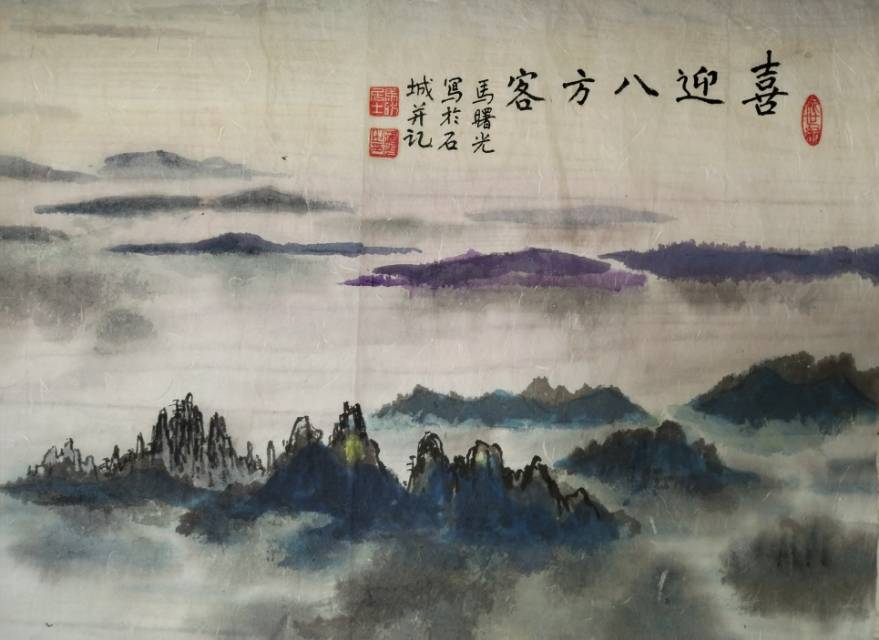 喜迎八方客
馬曙光
寫於石
城并記